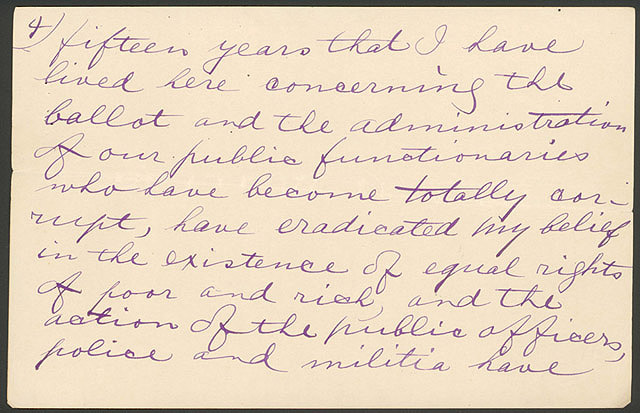 4) fifteen years that I have
lived here concerning the
ballot and the administration
of our public functionaries
who have become totally cor-
rupt, have eradicated my belief
in the existence of equal rights
of poor and rich, and the
action of the public officers,
police and militia have